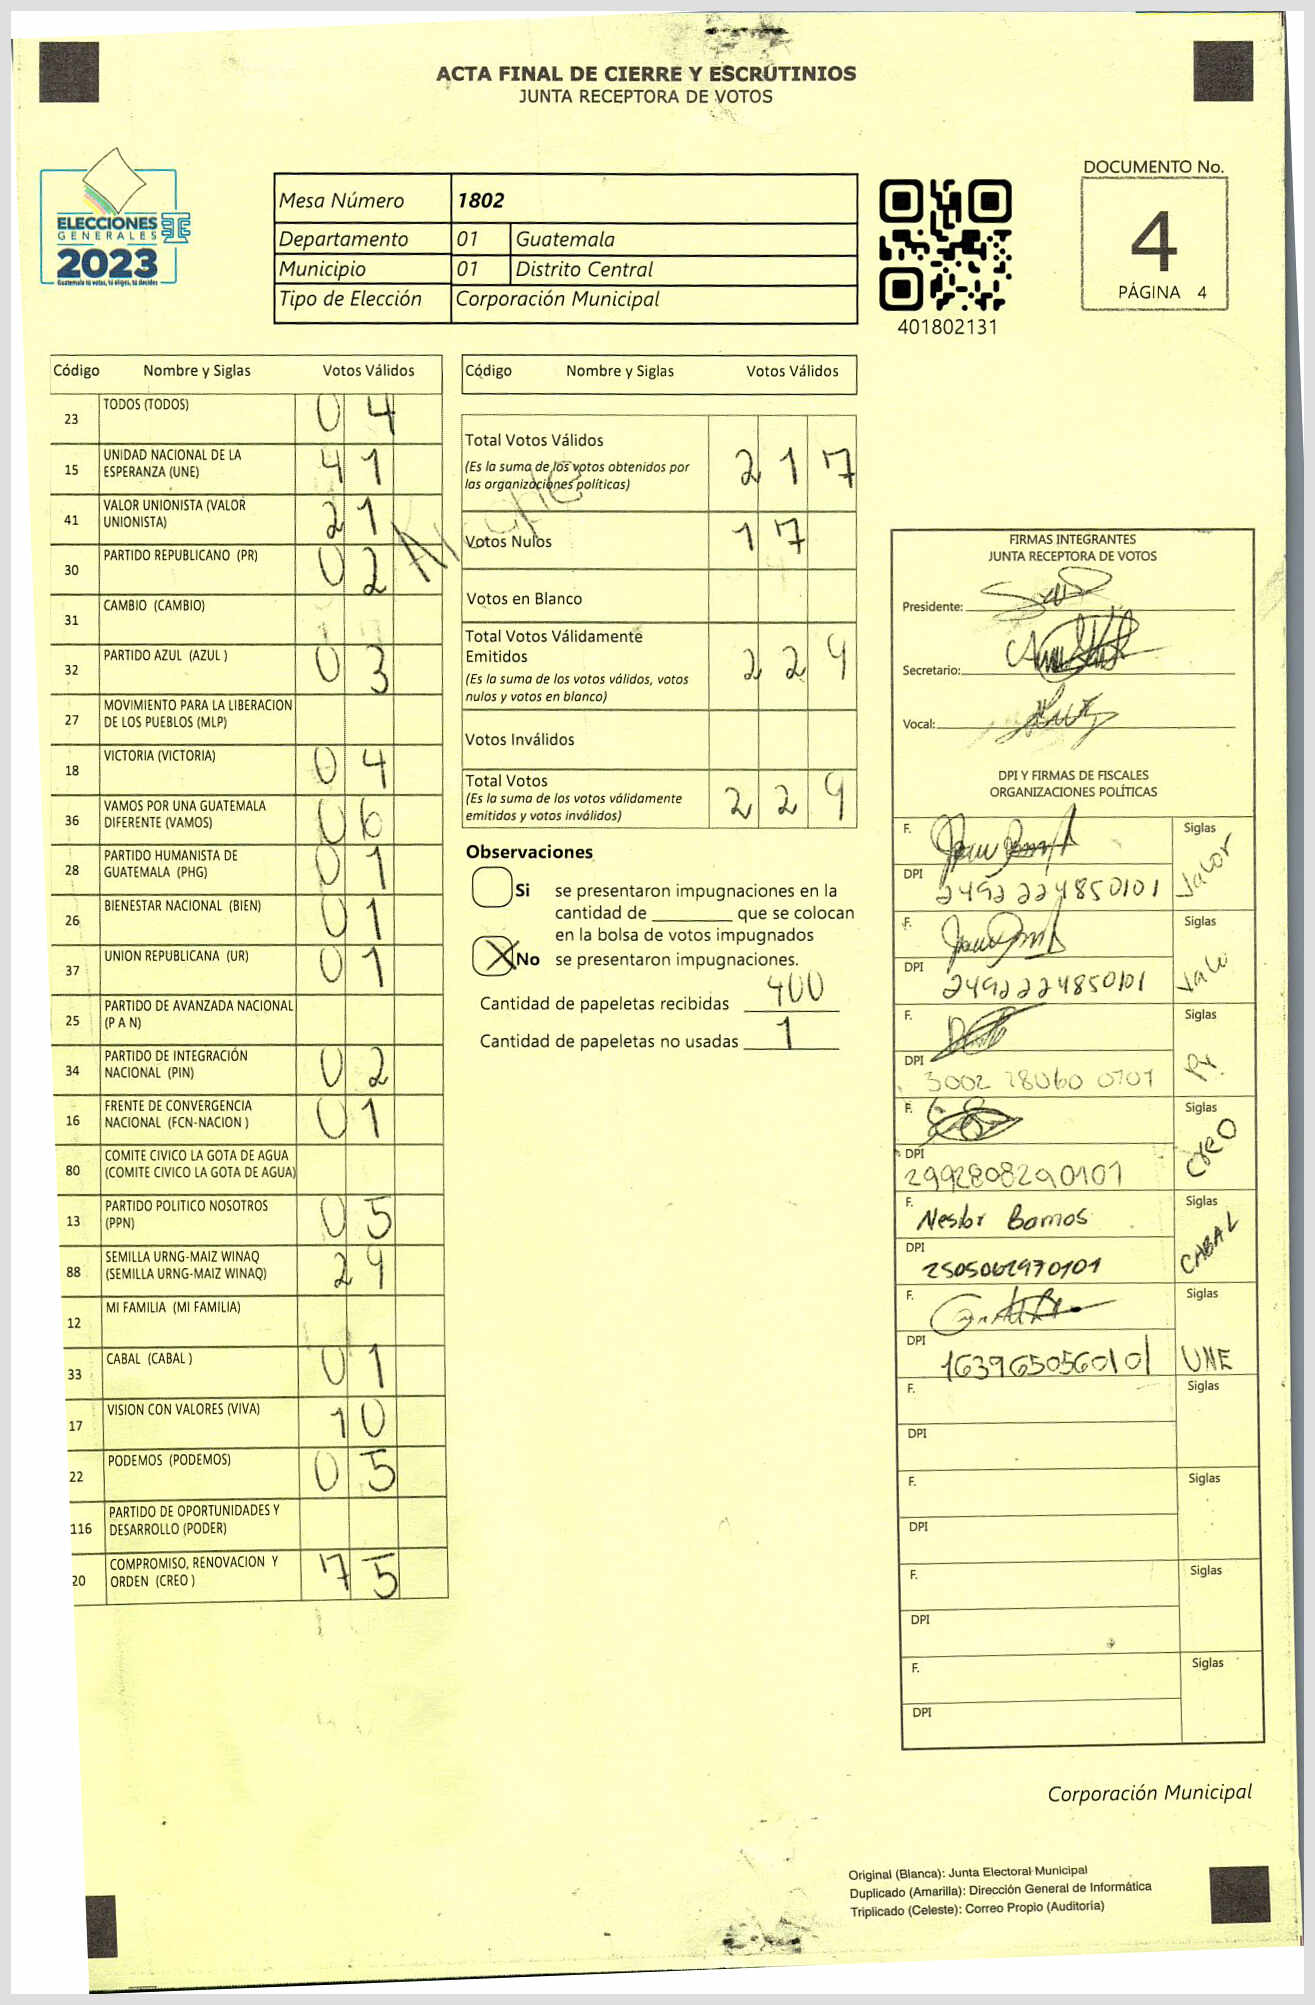 ACTA FINAL DE CIERRE Y ESCRUTINIOS
JUNTA RECEPTORA DE VOTOS
ELECCIONES
GENERALES
2023
Guatemala tú votas, tú eliges, tú decides
Mesa Número 1802
Departamento 01 Guatemala
Municipio 01 Distrito Central
Tipo de Elección Corporación Municipal
401802131
DOCUMENTO No.
4
PÁGINA 4
Código Nombre y Siglas Votos Válidos
23 TODOS (TODOS) 0 4
15 UNIDAD NACIONAL DE LA
ESPERANZA (UNE) 4 1
41 VALOR UNIONISTA (VALOR
UNIONISTA) 2 1
30 PARTIDO REPUBLICANO (PR) 0 2
31 CAMBIO (CAMBIO)
32 PARTIDO AZUL (AZUL ) 0 3
27 MOVIMIENTO PARA LA LIBERACION
DE LOS PUEBLOS (MLP)
18 VICTORIA (VICTORIA) 0 4
36 VAMOS POR UNA GUATEMALA
DIFERENTE (VAMOS) 0 6
28 PARTIDO HUMANISTA DE
GUATEMALA (PHG) 0 1
26 BIENESTAR NACIONAL (BIEN) 0 1
37 UNION REPUBLICANA (UR) 0 1
25 PARTIDO DE AVANZADA NACIONAL
(P A N)
34 PARTIDO DE INTEGRACIÓN
NACIONAL (PIN) 0 2
16 FRENTE DE CONVERGENCIA
NACIONAL (FCN-NACION ) 0 1
80 COMITE CIVICO LA GOTA DE AGUA
(COMITE CIVICO LA GOTA DE AGUA)
13 PARTIDO POLITICO NOSOTROS
(PPN) 0 5
88 SEMILLA URNG-MAIZ WINAQ
(SEMILLA URNG-MAIZ WINAQ) 2 9
12 MI FAMILIA (MI FAMILIA)
33 CABAL (CABAL ) 0 1
17 VISION CON VALORES (VIVA) 1 0
22 PODEMOS (PODEMOS) 0 5
116 PARTIDO DE OPORTUNIDADES Y
DESARROLLO (PODER)
20 COMPROMISO, RENOVACION Y
ORDEN (CREO ) 7 5
Código Nombre y Siglas Votos Válidos
Total Votos Válidos
(Es la suma de los votos obtenidos por
las organizaciones políticas) 2 1 7
Votos Nulos 1 7
Votos en Blanco
Total Votos Válidamente
Emitidos
(Es la suma de los votos válidos, votos
nulos y votos en blanco) 2 2 9
Votos Inválidos
Total Votos
(Es la suma de los votos válidamente
emitidos y votos inválidos) 2 2 9
Observaciones
Si se presentaron impugnaciones en la
cantidad de ________ que se colocan
en la bolsa de votos impugnados
No se presentaron impugnaciones.
Cantidad de papeletas recibidas 400
Cantidad de papeletas no usadas 1
FIRMAS INTEGRANTES
JUNTA RECEPTORA DE VOTOS
Presidente:
Secretario:
Vocal:
DPI Y FIRMAS DE FISCALES
ORGANIZACIONES POLÍTICAS
F. Siglas Valor
DPI 2492224850101
F. Siglas Valor
DPI 2492224850101
F. Siglas
DPI 3002 28060 0101
F. Siglas CREO
DPI 2992808290101
F. Nestor Barrios Siglas CABAL
DPI 2505062970101
F. Siglas UNE
DPI 1639650560101
F. Siglas
DPI
F. Siglas
DPI
F. Siglas
DPI
F. Siglas
DPI
Corporación Municipal
Original (Blanca): Junta Electoral Municipal
Duplicado (Amarilla): Dirección General de Informática
Triplicado (Celeste): Correo Propio (Auditoría)